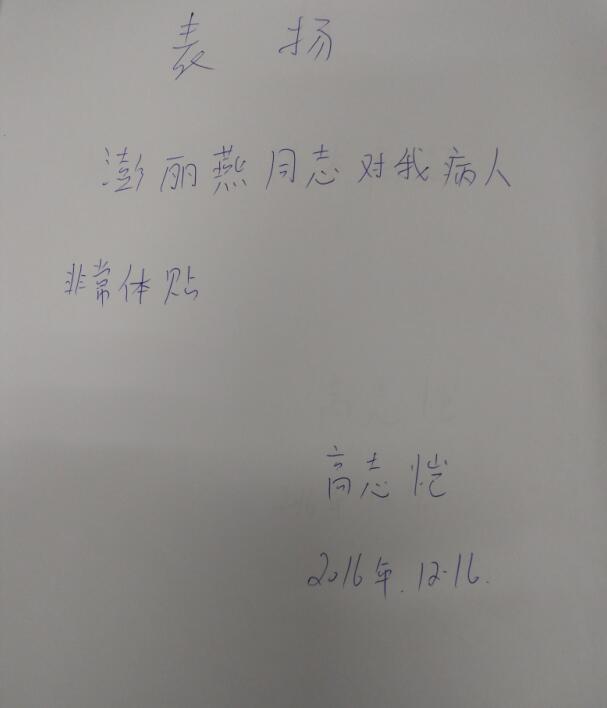 表扬
澎丽燕同志对我病人
非常体贴
高志恺
2016年.12.16.